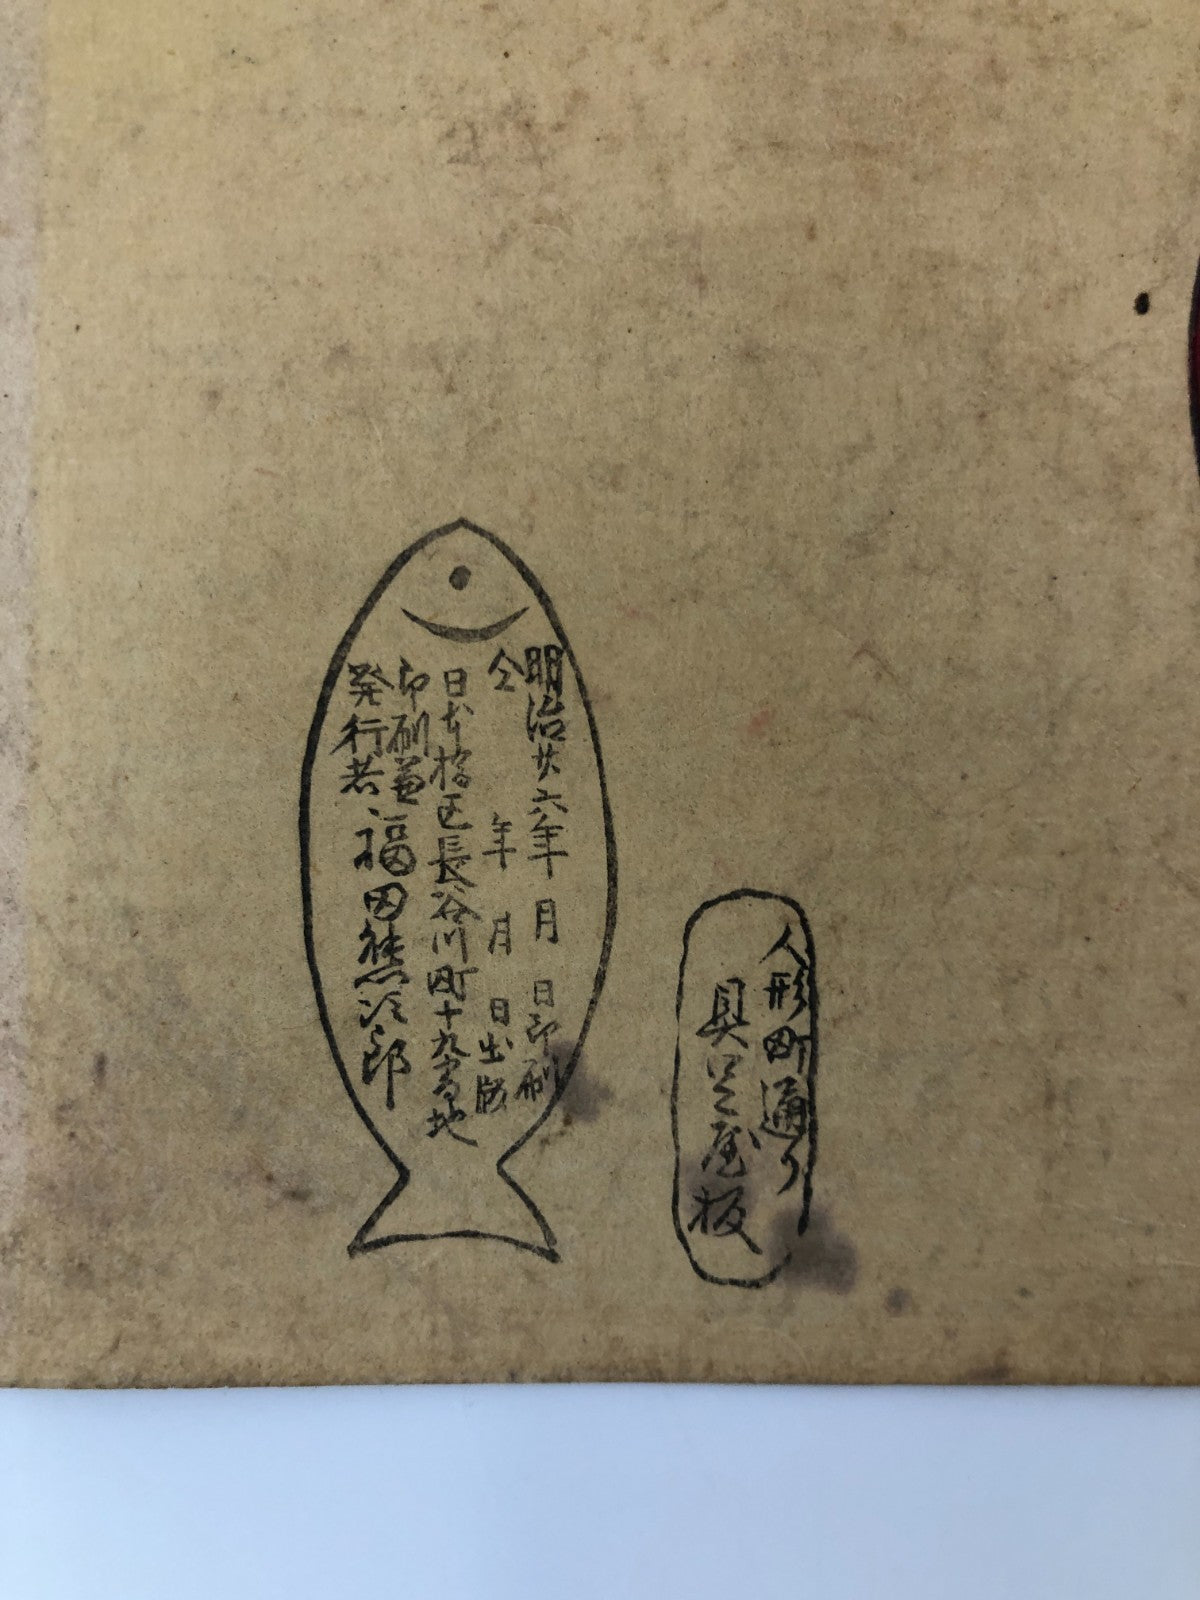 人形町通り
具足屋板
明治廿六年 月 日印刷
仝 年 月 日出版
日本橋区長谷川町十九番地
印刷兼
発行者 福田熊次郎